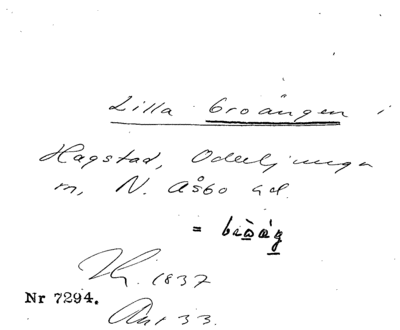 Lilla broängen i
Hagstad, Oderljunga
m, N. Åsbo hd.
= bròág
1837
Nr 7294.
33.